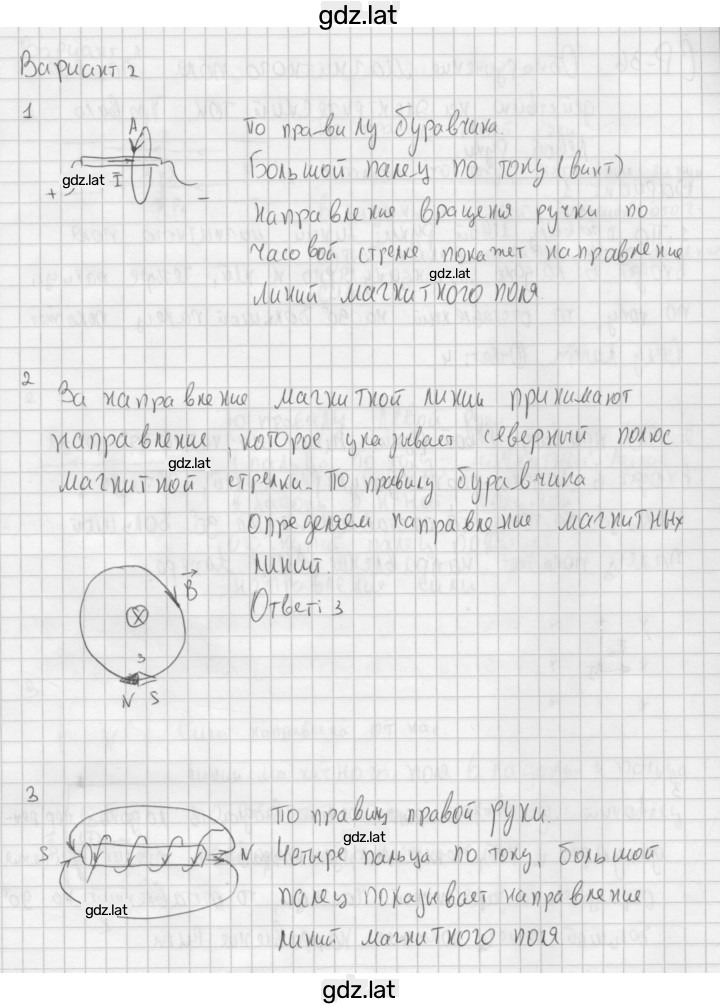 gdz.lat
Вариант 2
1
A
I
+
-
gdz.lat
По правилу буравчика.
Большой палец по току (винт)
Направление вращения ручки по
часовой стрелке покажет направление
gdz.lat
линий магнитного поля
2
За направление магнитной линии принимают
направление, которое указывает северный полюс
gdz.lat
магнитной стрелки. По правилу буравчика
определяем направление магнитных
линий.
Ответ: 3
B
3
N S
3
S
N
gdz.lat
По правилу правой руки.
gdz.lat
Четыре пальца по току, большой
палец показывает направление
линий магнитного поля
gdz.lat